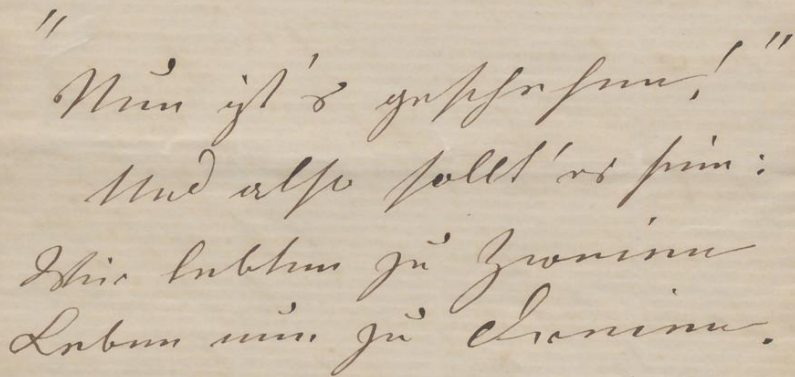 "Nun ist's geschehen!"
Und also sollt' es sein:
Wir lebten zu Zweien
Leben nun zu Dreien.